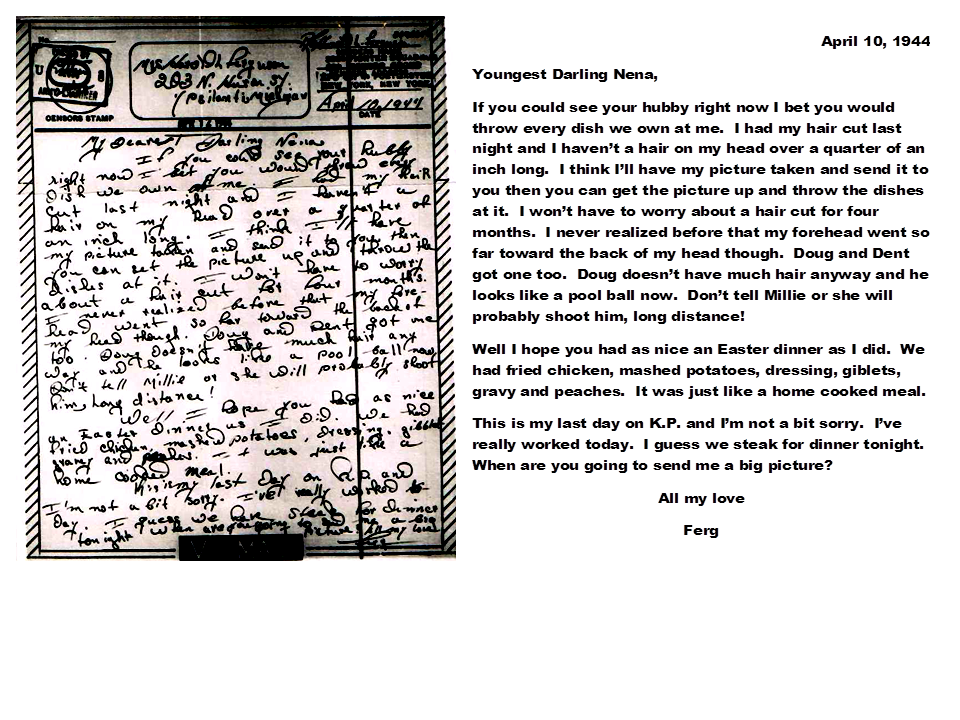 No.
U
8
CENSORS STAMP
Mrs Harold L. Ferguson
203 N. Huron St
Ypsilanti Michigan
NEW YORK, NEW YORK
April 10, 1944
DATE
My Dearest Darling Nena
If you could see your hubby
right now I bet you would throw every
dish we own at me. I had my hair
cut last night and I haven't a
hair on my head over a quarter of
an inch long. I think I'll have
my picture taken and send it to you then
you can set the picture up and throw the
dishes at it. I won't have to worry
about a hair cut for four months.
I never realized before that my fore-
head went so far toward the back of
my head though. Doug and Dent got one
too. Doug doesn't have much hair any
way and he looks like a pool ball now
Don't tell Millie or she will probably shoot
him, long distance!
Well I hope you had as nice
an Easter dinner as I did. We had
fried chicken, mashed potatoes, dressing, giblets
gravy and peaches. It was just like a
home cooked meal.
This is my last day on K.P. and
I'm not a bit sorry. I've really worked to-
day. I guess we have steak for dinner
tonight. When are you going to send me a big
picture? All my love
Ferg
April 10, 1944
Youngest Darling Nena,
If you could see your hubby right now I bet you would
throw every dish we own at me. I had my hair cut last
night and I haven't a hair on my head over a quarter of an
inch long. I think I'll have my picture taken and send it to
you then you can get the picture up and throw the dishes
at it. I won't have to worry about a hair cut for four
months. I never realized before that my forehead went so
far toward the back of my head though. Doug and Dent
got one too. Doug doesn't have much hair anyway and he
looks like a pool ball now. Don't tell Millie or she will
probably shoot him, long distance!
Well I hope you had as nice an Easter dinner as I did. We
had fried chicken, mashed potatoes, dressing, giblets,
gravy and peaches. It was just like a home cooked meal.
This is my last day on K.P. and I'm not a bit sorry. I've
really worked today. I guess we steak for dinner tonight.
When are you going to send me a big picture?
All my love
Ferg